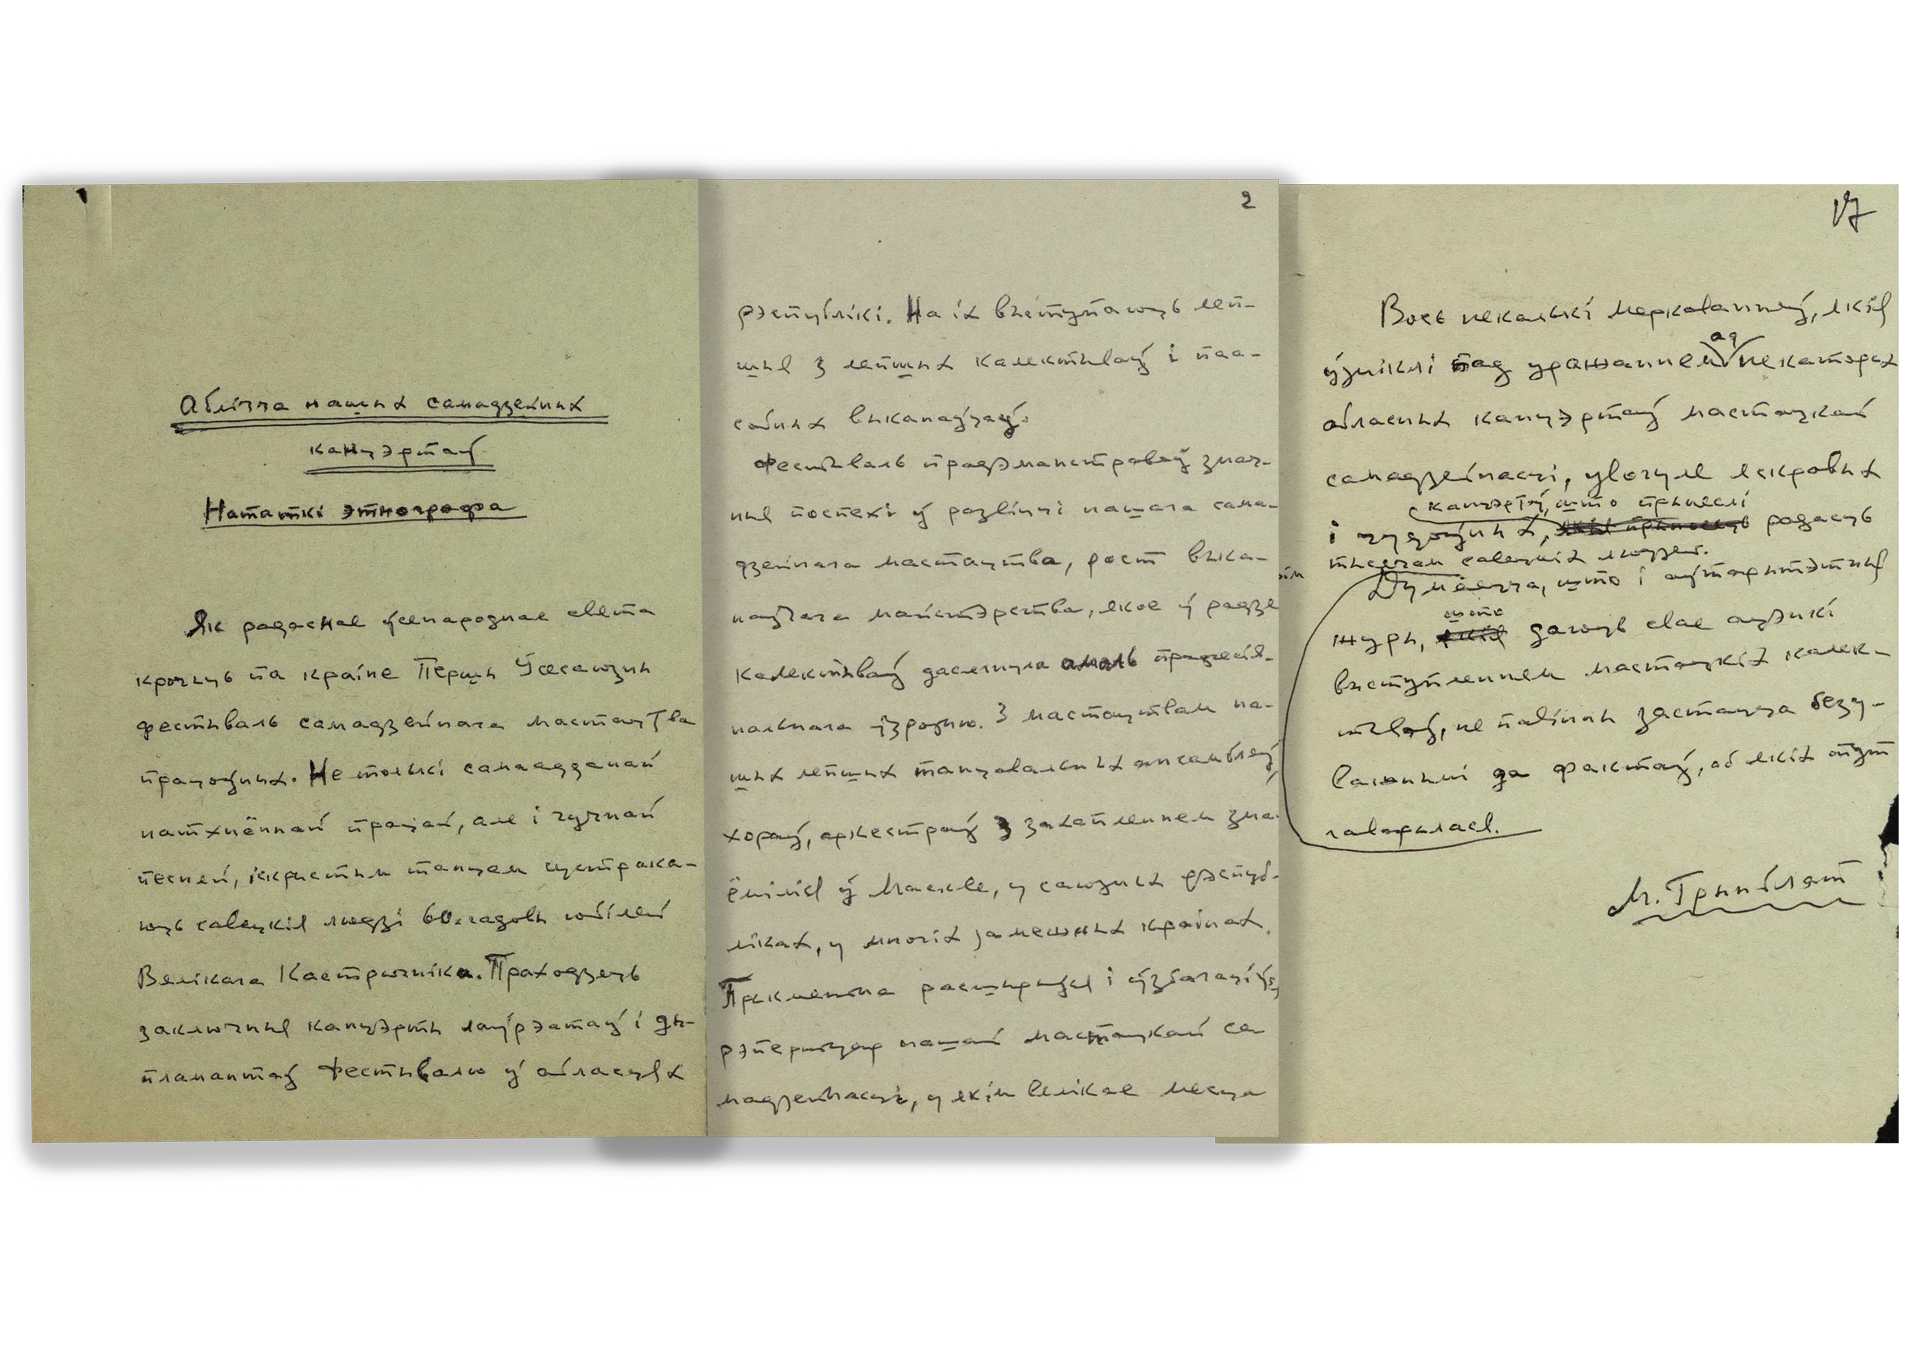 Аблічча нашых самадзейных
канцэртаў
Нататкі этнографа
Як радаснае ўсенароднае свята
крочыць па краіне Першы Усесаюзны
фестываль самадзейнага мастацтва
працоўных. Не толькі самаадданай
натхнённай працай, але і гучнай
песняй, іскрыстым танцам сустрака-
юць савецкія людзі 60-гадовы юбілей
Вялікага Кастрычніка. Праходзяць
заключныя канцэрты лаўрэатаў і ды-
пламантаў фестывалю ў абласцях
2
рэспублікі. На іх выступаюць леп-
шыя з лепшых калектываў і паа-
собных выканаўцаў.
Фестываль прадэманстраваў знач-
ныя поспехі ў развіцці нашага сама-
дзейнага мастацтва, рост выка-
наўчага майстэрства, якое ў радзе
калектываў дасягнула амаль прафесія-
нальнага ўзроўню. З мастацтвам на-
шых лепшых танцавальных ансамбляў,
хораў, аркестраў з захапленнем зна-
ёміліся ў Маскве, у саюзных рэспуб-
ліках, у многіх замежных краінах.
Прыкметна расшырыўся і ўзбагаціўся
рэпертуар нашай мастацкай са-
мадзейнасці, у якім вялікае месца
17
Вось некалькі меркаванняў, якія
ўзніклі пад уражаннем ад некаторых
абласных канцэртаў мастацкай
самадзейнасці, увогуле яскравых
канцэртаў, што прынеслі
і чудоўных, радасць
тысячам савецкіх людзей.
Думаецца, што і аўтарытэтныя
што
журы, даюць свае ацэнкі
выступленням мастацкіх калек-
тываў, не павінны заставацца безу-
важнымі да фактаў, аб якіх тут
гаварылася.
М. Грынблат